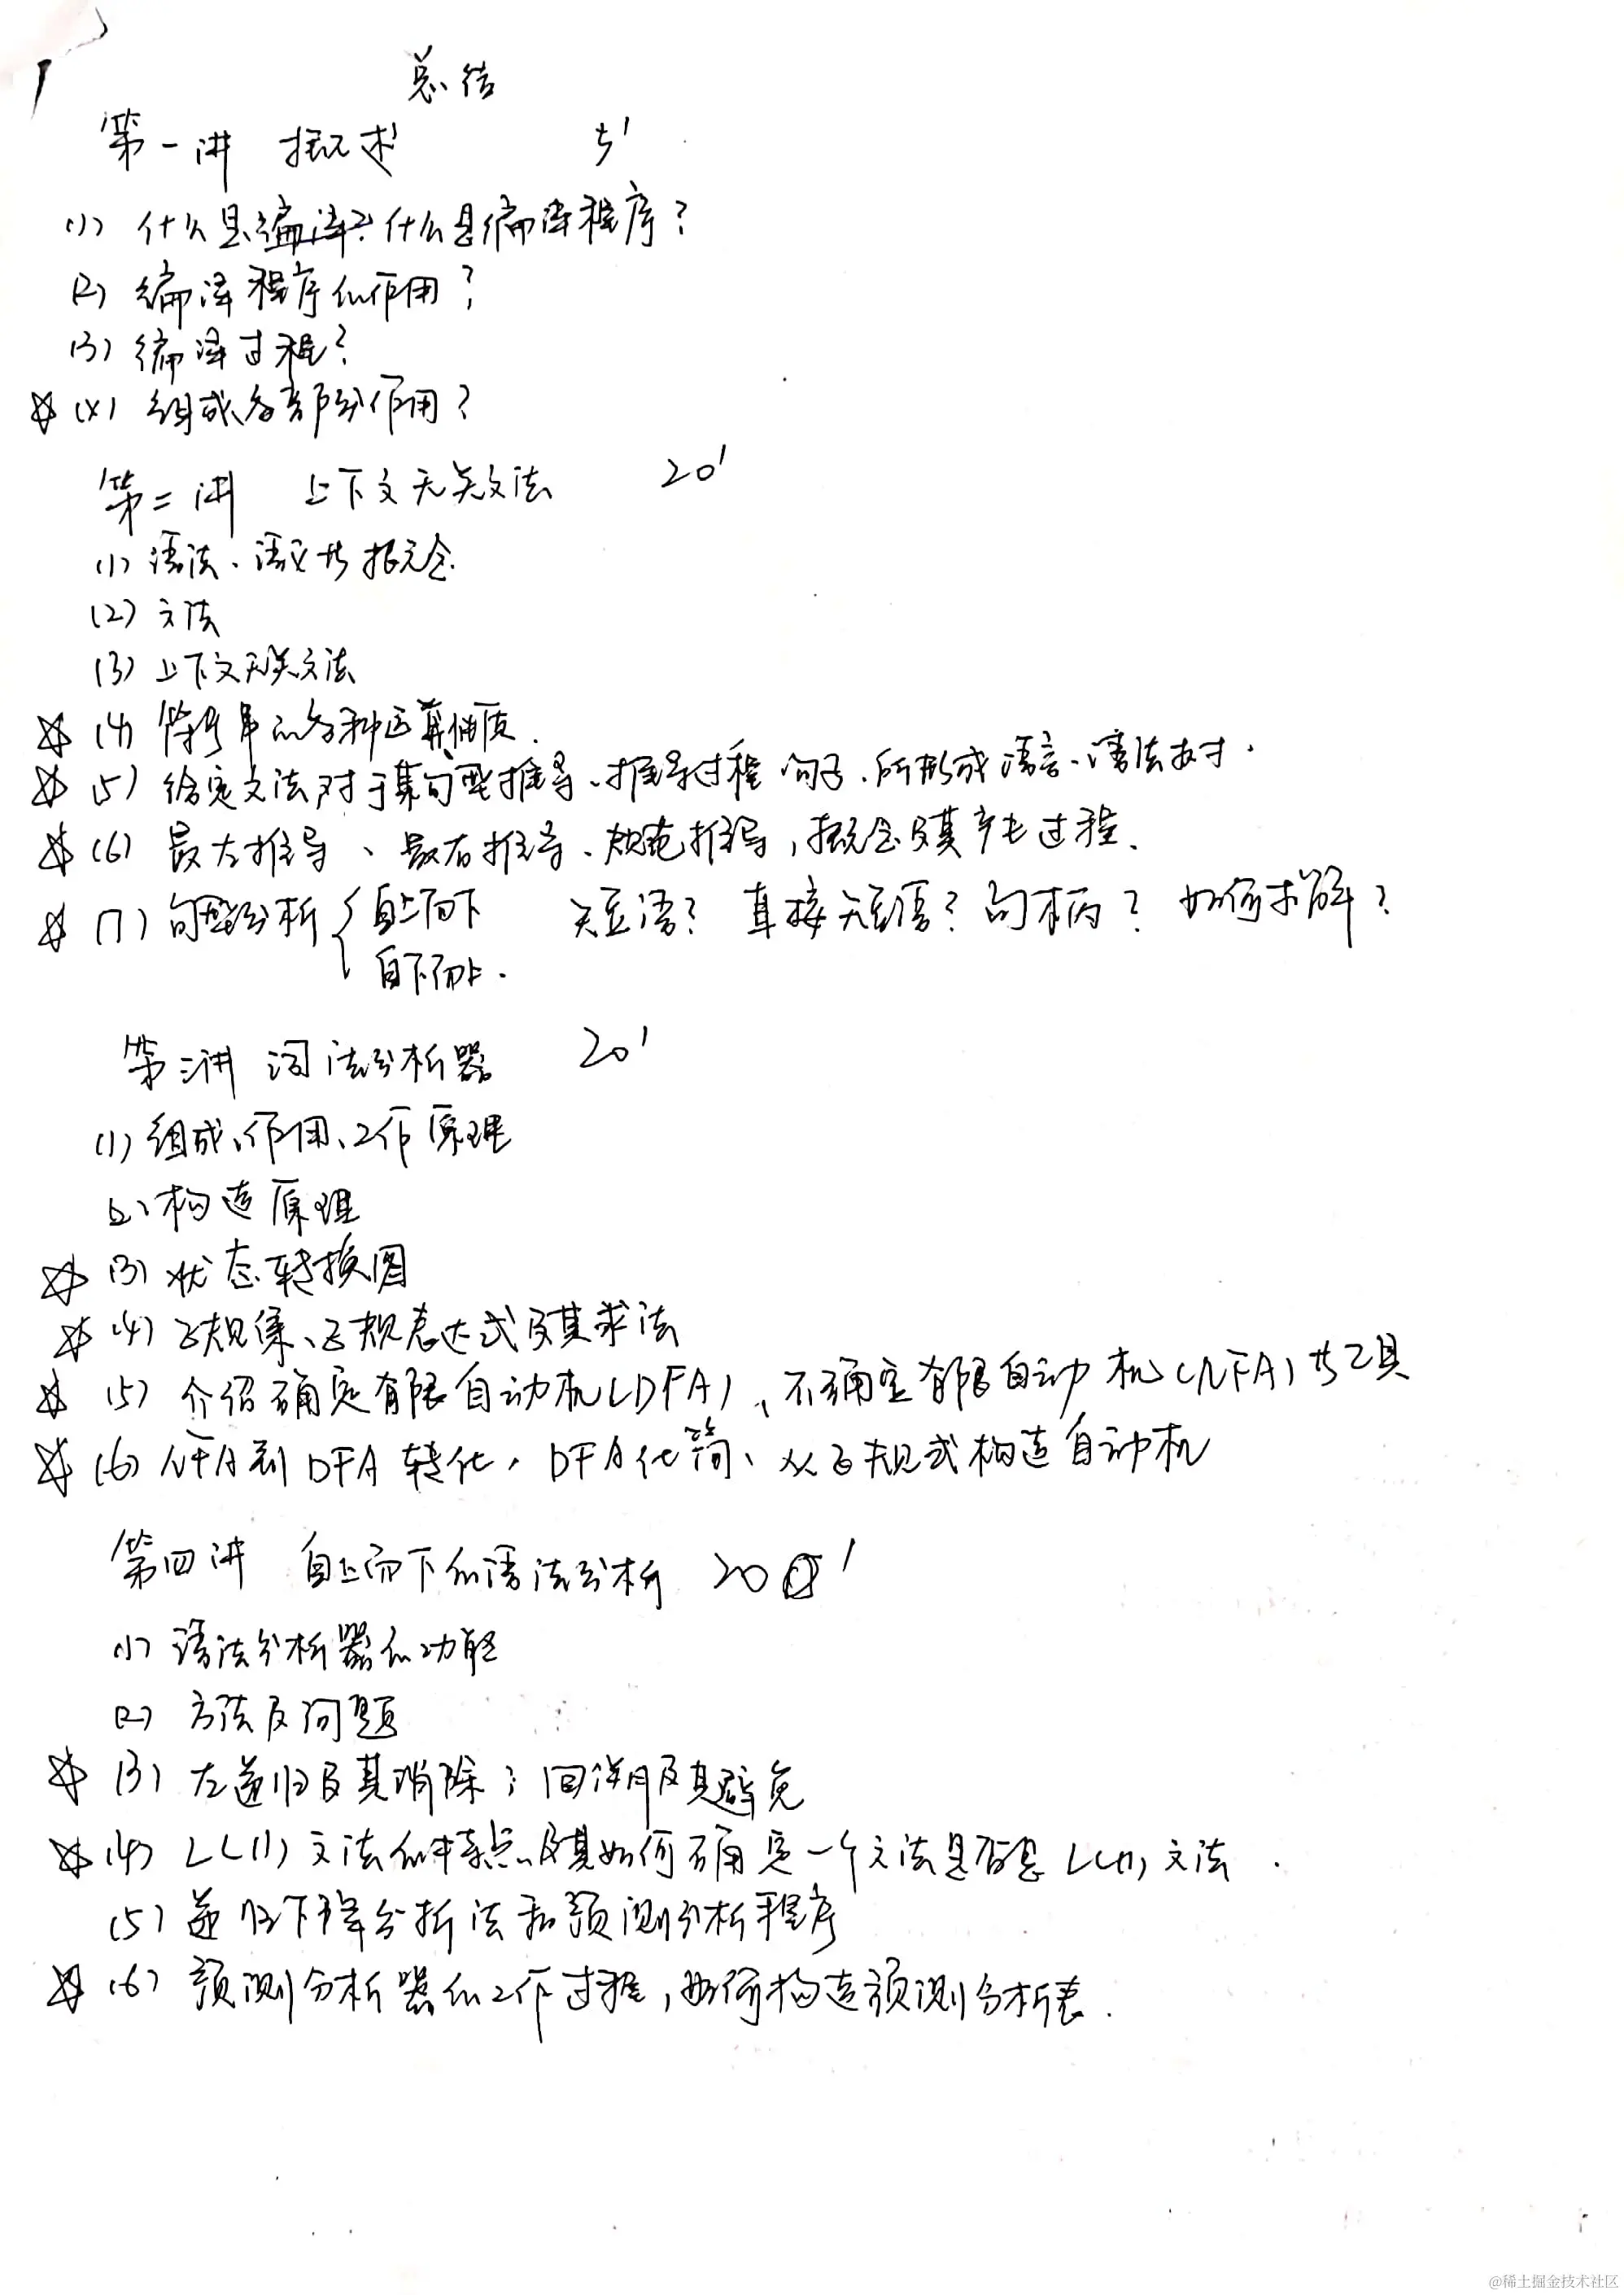 总结
第一讲 概述 5'
(1) 什么是编译?什么是编译程序?
(2) 编译程序的作用?
(3) 编译过程?
☆ (4) 组成各部分作用?
第二讲 上下文无关文法 20'
(1) 语法、语义等概念
(2) 文法
(3) 上下文无关文法
☆ (4) 符号串的各种运算性质.
☆ (5) 给定文法对于某句型推导、推导过程 句子、所形成语言、语法树.
☆ (6) 最左推导、最右推导、规范推导,概念及其产生过程.
☆ (7) 句型分析 { 自上而下 短语? 直接短语? 句柄? 如何求解?
自下而上.
第三讲 词法分析器 20'
(1) 组成、作用、工作原理
(2) 构造原理
☆ (3) 状态转换图
☆ (4) 正规集、正规表达式及其求法
☆ (5) 介绍确定有限自动机(DFA)、不确定有限自动机(NFA)等工具
☆ (6) NFA到DFA转化,DFA化简、从正规式构造自动机
第四讲 自上而下的语法分析 20'
(1) 语法分析器的功能
(2) 方法及问题
☆ (3) 左递归及其消除;回溯及其避免
☆ (4) LL(1)文法的特点及其如何确定一个文法是否是LL(1)文法.
(5) 递归下降分析法和预测分析程序
☆ (6) 预测分析器的工作过程,如何构造预测分析表.
@稀土掘金技术社区